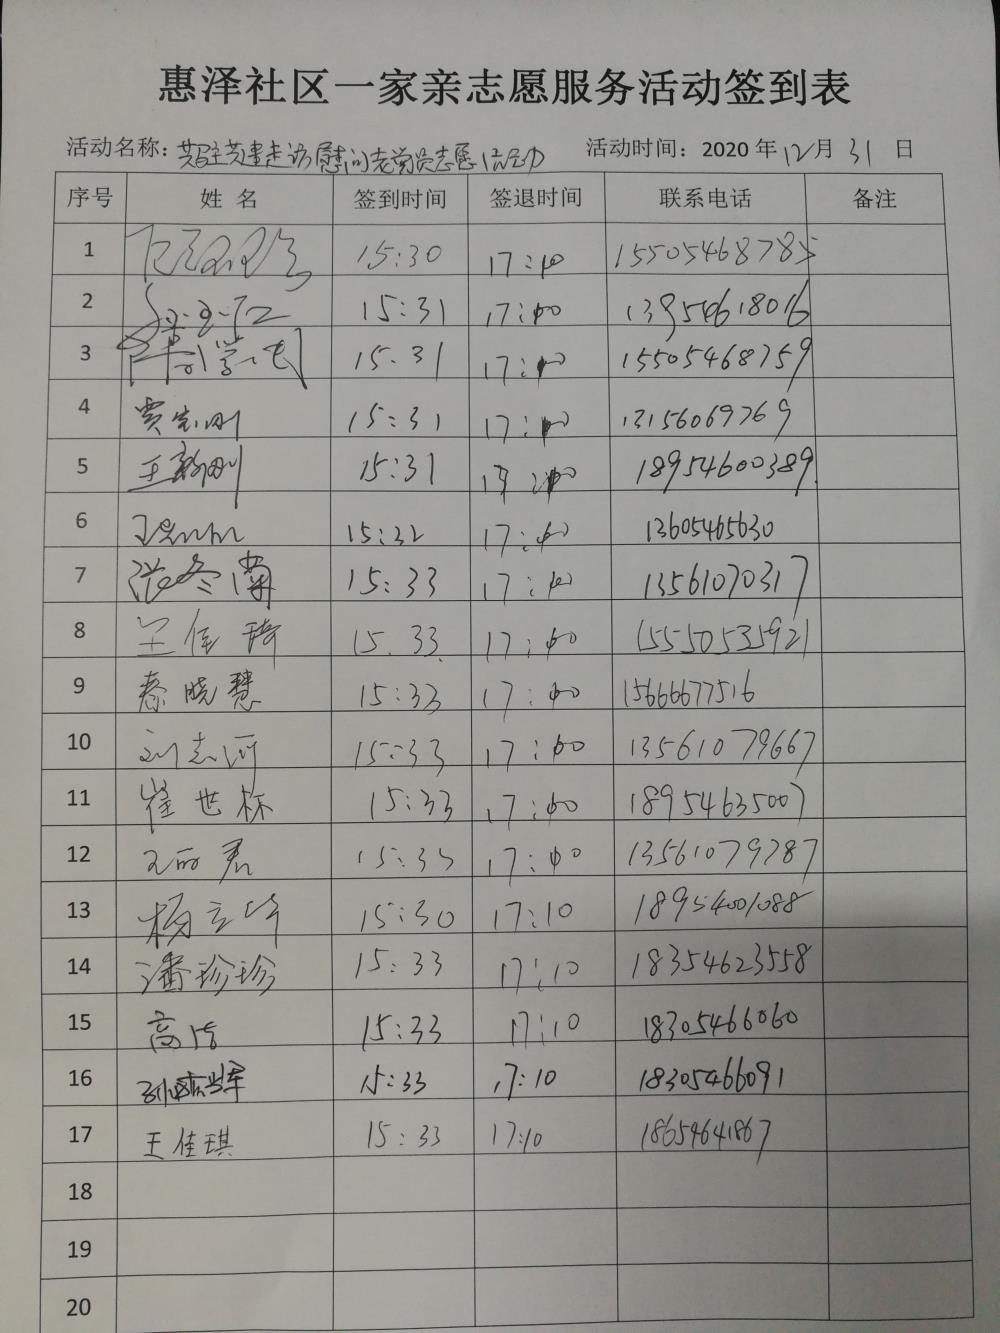 惠泽社区一家亲志愿服务活动签到表
活动名称: 走访慰问老党员志愿活动 活动时间: 2020 年 12 月 31 日
序号 姓 名 签到时间 签退时间 联系电话 备注
1 15:30 17:10 15505468785
2 15:31 17:10 13954618016
3 15:31 17:10 15505468759
4 贾志刚 15:31 17:10 13156069769
5 15:31 18954600389
6 15:32 17:10 13605465630
7 张冬兰 15:33 17:10 13561070317
8 王佳琦 15:33 17:10 15550535921
9 秦晓慧 15:33 17:10 15666677516
10 刘志河 15:33 17:10 13561079667
11 崔世栋 15:33 17:10 18954635007
12 王丽君 17:10 13561079787
13 杨立华 15:30 17:10 18954001088
14 潘珍珍 15:33 17:10 18354623558
15 高洁 15:33 17:10 18305466060
16 15:33 17:10 18305466091
17 王佳琪 15:33 17:10 18654641867
18
19
20